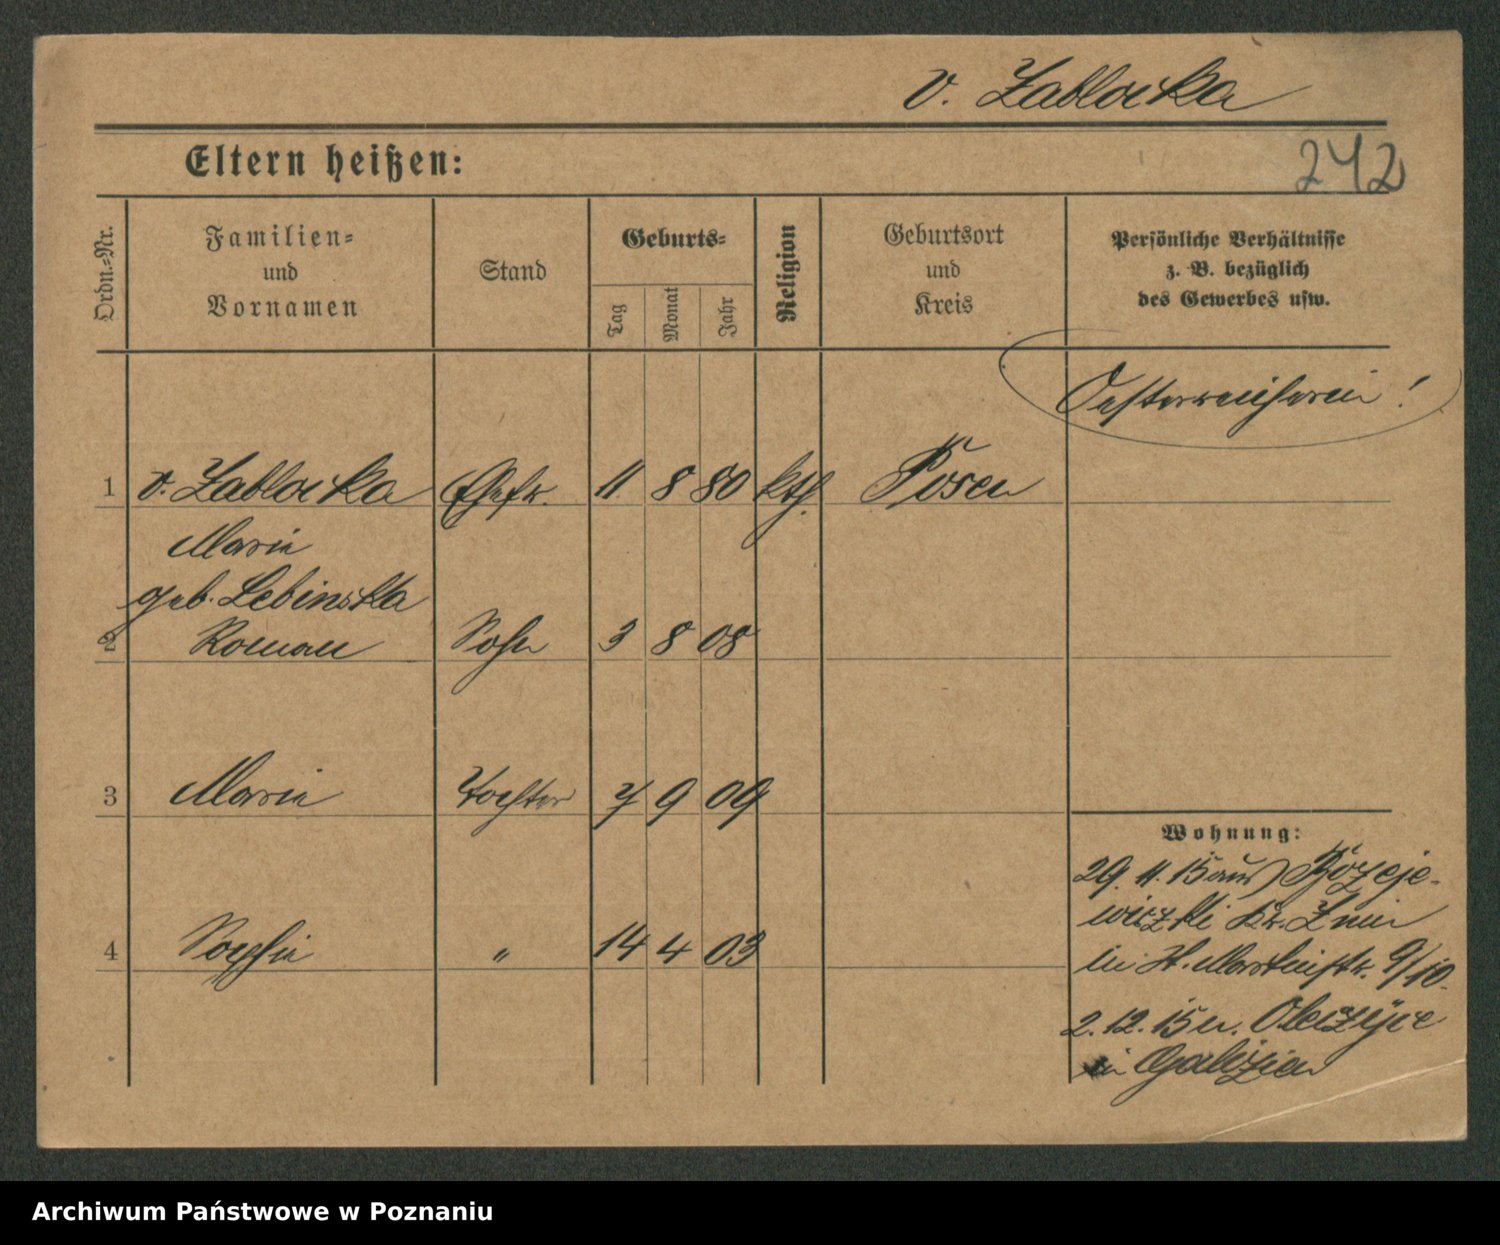 v. Zablocka
Eltern heißen:
242
Ordn.=Nr.
Familien=
und
Vornamen
Stand
Geburts=
Tag
Monat
Jahr
Religion
Geburtsort
und
Kreis
Persönliche Verhältnisse
z. B. bezüglich
des Gewerbes usw.
Oesterreicherin!
1 v. Zablocka Ehefr. 11 8 80 kth. Posen
Marie
geb. Lebinska
2 Roman Sohn 3 8 08
3 Marie Tochter 7 9 09
4 Sophie " 14 4 03
Wohnung:
29. 11. 15 aus Bozeje-
wiczki Kr. Znin
in H. Marstallstr. 9/10.
2. 12. 15 n.
in Galizien
Archiwum Państwowe w Poznaniu